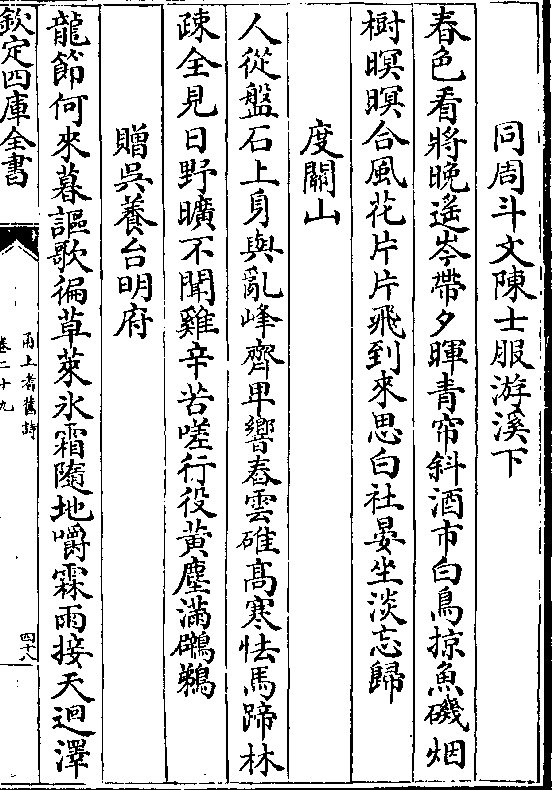 同周斗文陳士服游溪下
春色看將晚遙岑帶夕暉青帘斜酒市白鳥掠魚磯烟
樹暝暝合風花片片飛到來思白社晏坐淡忘歸
度關山
人從盤石上身與亂峰齊畢響舂雲碓高寒怯馬蹄林
疎全見日野曠不聞雞辛苦嗟行役黄塵滿鸊鵜
贈吳養台明府
龍節何來暮謳歌徧草萊氷霜隨地嚼霖雨接天迴澤
欽定四庫全書
甬上耆舊詩
卷二十九
四十八